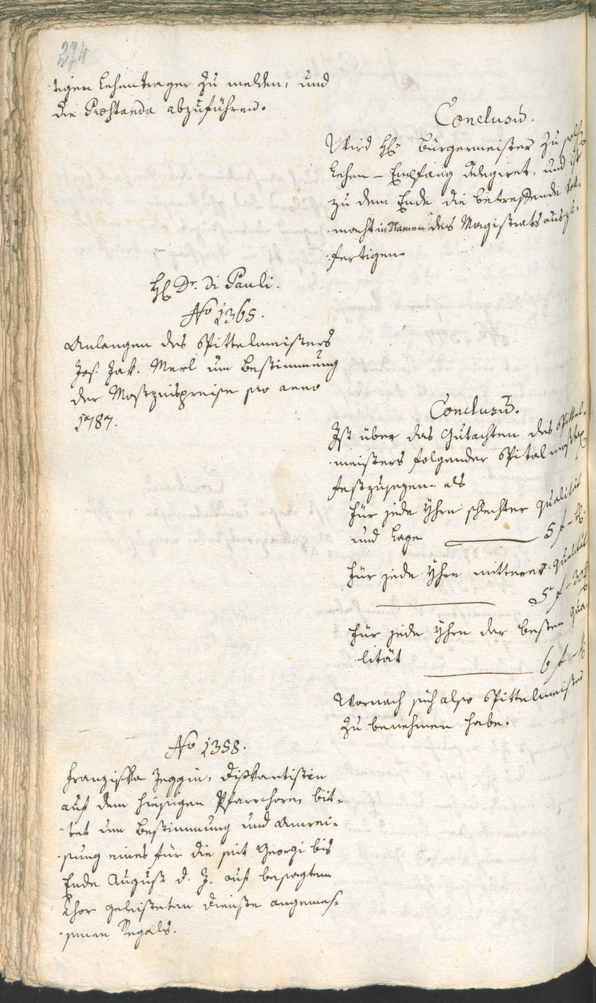 274
tigen Lehentrager zu melden, und
die Prästanda abzuführen.
Conclusũ.
Wird H. Bürgermeister zu
Lehen-Empfang delegiret, und
zu dem Ende die betreffende
macht in Namen des Magistrats auszu-
fertigen.
H. Dr. di Pauli.
No 1365.
Anlangen des Spittelmeisters
Jos. Jak. Merl um Bestimmung
der Mostzinspreise pro anno
1787.
Conclusũ.
Ist über das Gutachten des Spittel-
meisters folgender Spital
festzusezen. als
für jede Yhrn schlechter Qualität
und Lage — 5 f - k
für jede Yhrn mitterer Qualität
— 5 f - 30 k
für jede Yhrn der besten Qua-
lität — 6 f - k
Wornach sich also Spittelmeister
zu benehmen habe.
No 1358.
Franziska Zeggin, Diskantistin
auf dem hiesigen Pfarrchore, bit-
tet um Bestimmung und Anwei-
sung eines für die seit Georgi bis
Ende August d. J. auf besagtem
Chor geleisteten Dienste angemes-
senen Regals.